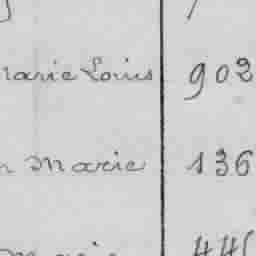 Marie Louis 902
n Marie 136